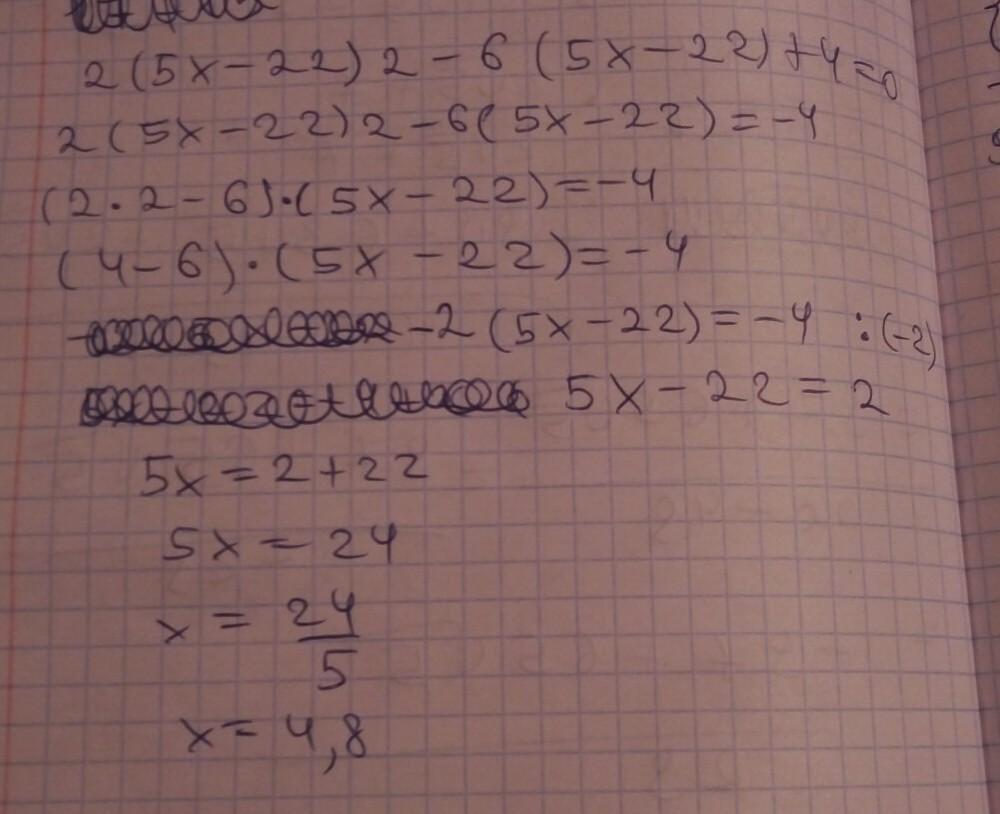 2(5x-22)2-6(5x-22)+4=0
2(5x-22)2-6(5x-22)=-4
(2·2-6)·(5x-22)=-4
(4-6)·(5x-22)=-4
-2(5x-22)=-4 :(-2)
5x-22=2
5x=2+22
5x=24
x=24/5
x=4,8